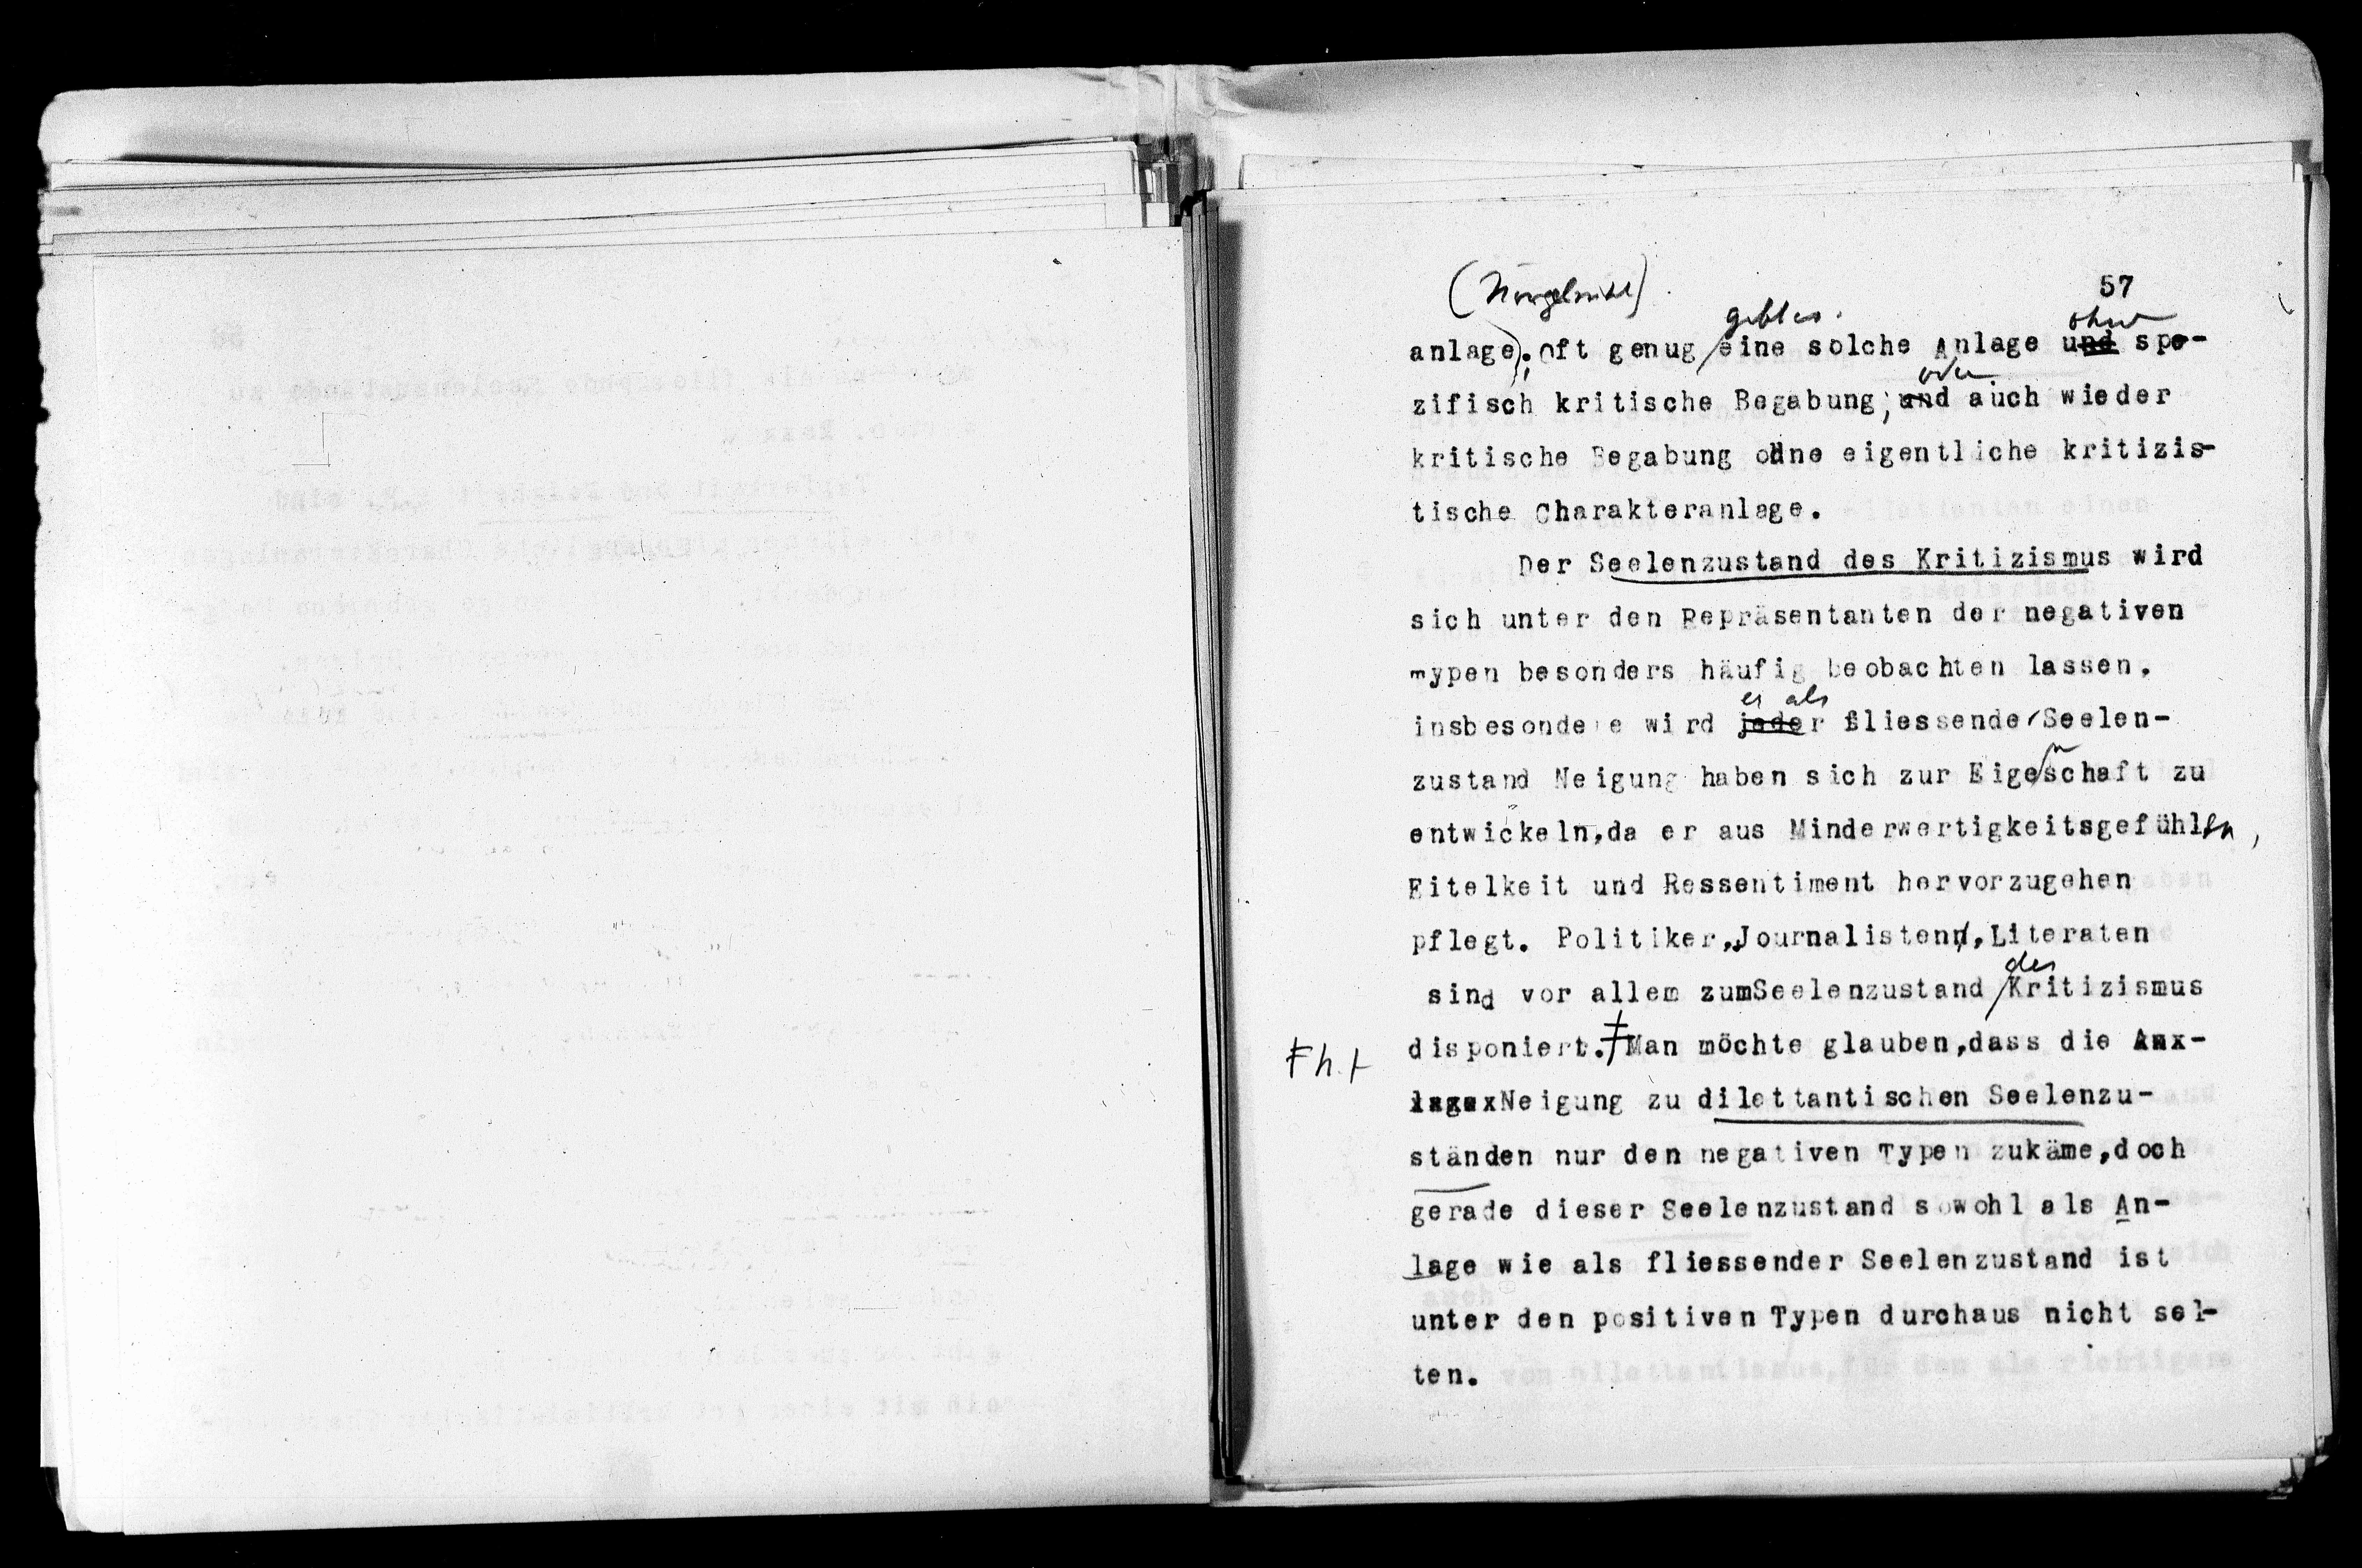 57
(Nörgelsucht)
gibt es ohne
anlage); oft genug eine solche Anlage und spe-
oder
zifisch kritische Begabung; und auch wieder
kritische Begabung ohne eigentliche kritizis-
tische Charakteranlage.
Der Seelenzustand des Kritizismus wird
sich unter den Repräsentanten der negativen
Typen besonders häufig beobachten lassen,
er als
insbesondere wird jeder fliessende Seelen-
n
zustand Neigung haben sich zur Eigeschaft zu
entwickeln,da er aus Minderwertigkeitsgefühlen,
Eitelkeit und Ressentiment hervorzugehen
pflegt. Politiker, Journalisten, Literaten
des
sind vor allem zumSeelenzustand Kritizismus
disponiert. Man möchte glauben,dass die Anx-
h.t
lagexNeigung zu dilettantischen Seelenzu-
ständen nur den negativen Typen zukäme,doch
gerade dieser Seelenzustand sowohl als An-
lage wie als fliessender Seelenzustand ist
unter den positiven Typen durchaus nicht sel-
ten.